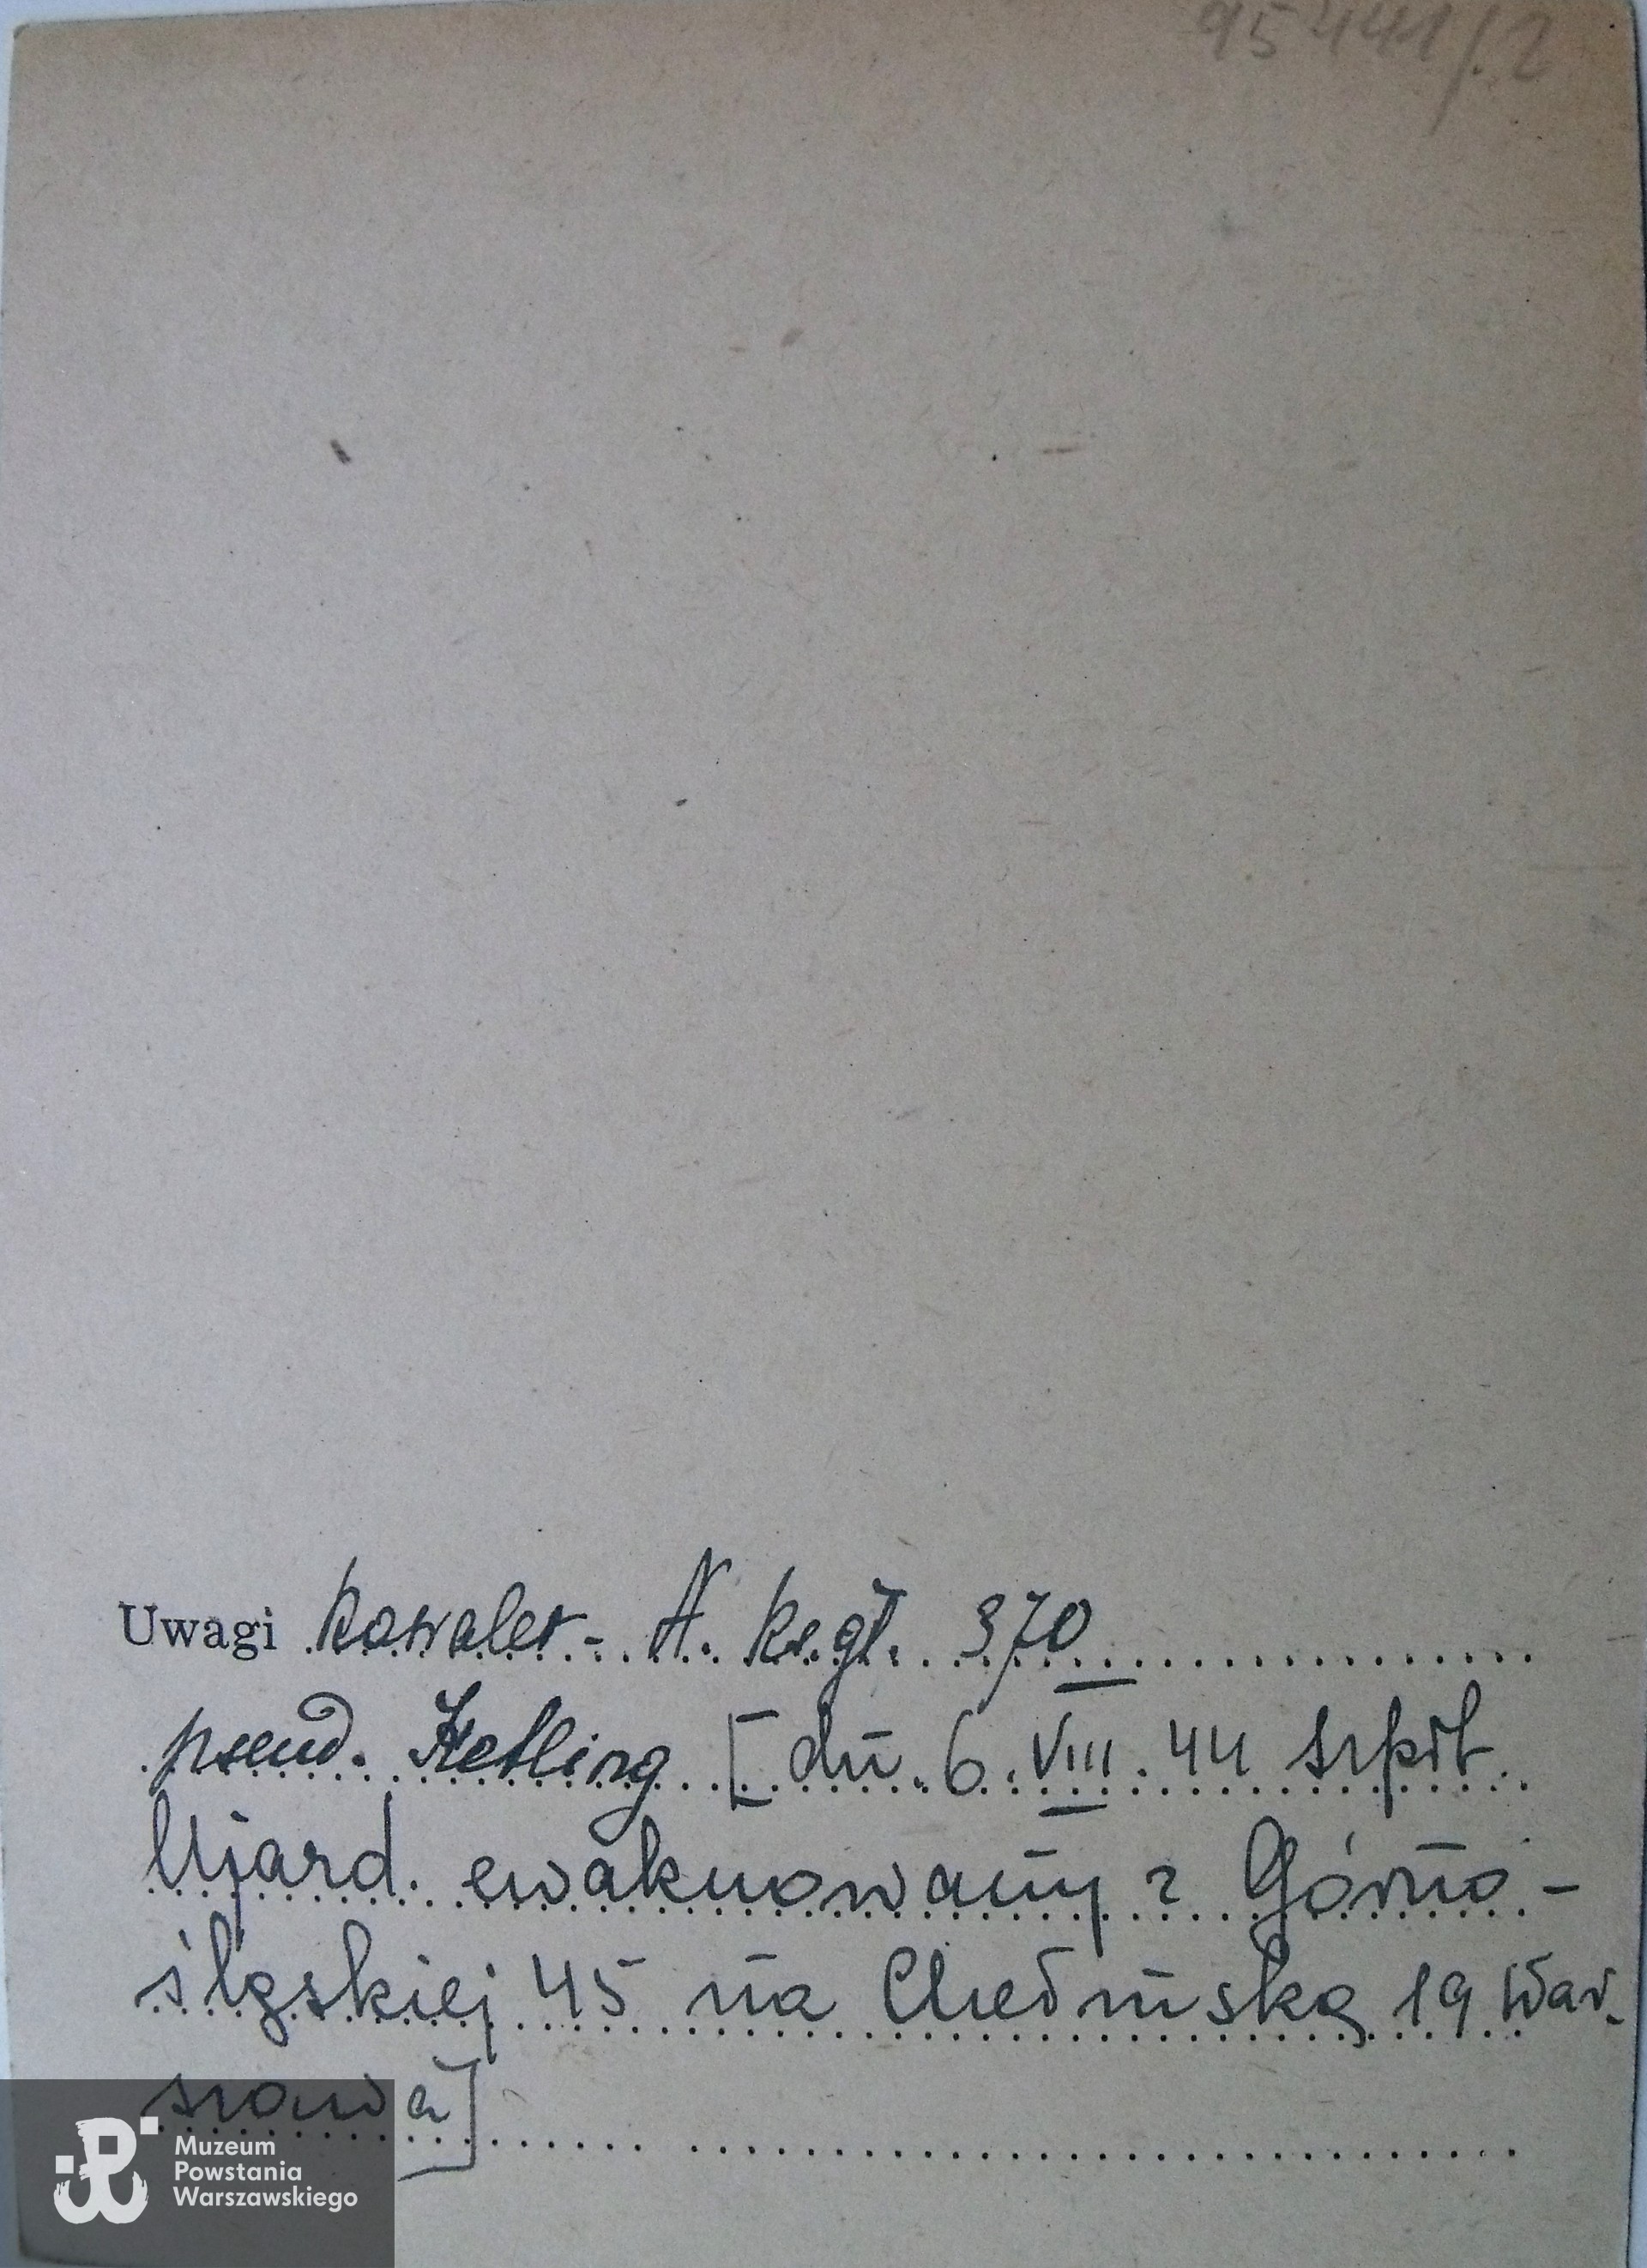 95441/.2
Uwagi kawaler - A. ks. gł. 370
pseud. Ketling [dn. 6. VIII. 44 szpit.
Ujazd. ewakuowany z Górno -
śląskiej 45 na Chełmską 19 War.
szawa]
Muzeum
Powstania
Warszawskiego